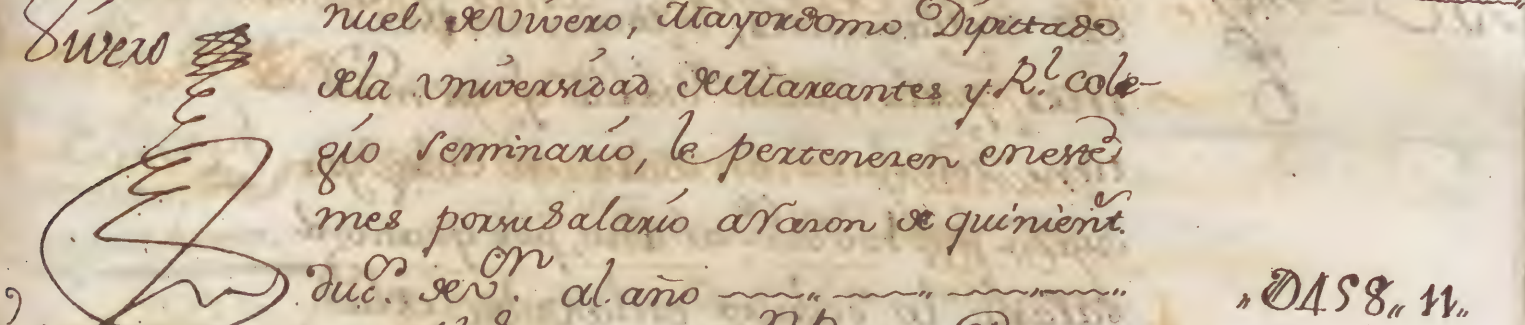 Vivero
nuel de Vivero, Mayordomo Diputado
dela Universidad de Mareantes y R.l cole-
gio Seminario, le pertenezen eneste
mes porsu Salario a razon de quinient.s
duc.s de v.on al año
,,0458,, 11,,